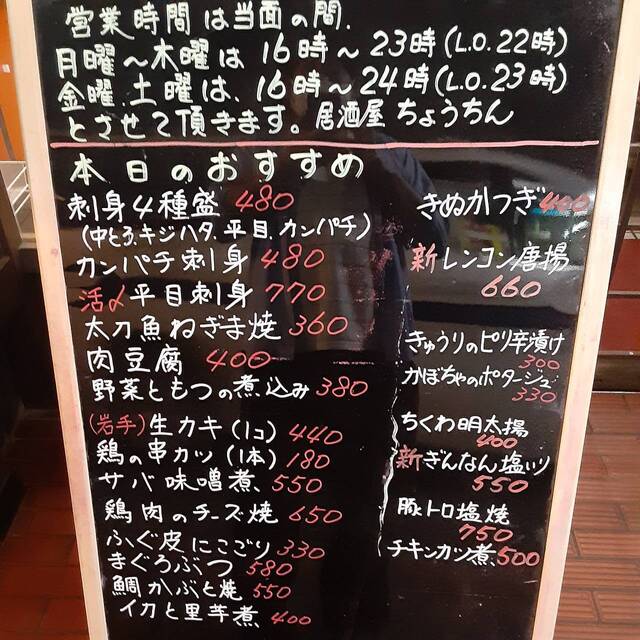 営業時間は当面の間、
月曜~木曜は 16時~23時(L.O.22時)
金曜、土曜は、16時~24時(L.O.23時)
とさせて頂きます。居酒屋 ちょうちん
本日のおすすめ
刺身4種盛 480
(中とろ、キジハタ、平目、カンパチ)
カンパチ刺身 480
活〆平目刺身 770
太刀魚ねぎま焼 360
肉豆腐 400
野菜ともつの煮込み 380
(岩手)生カキ(1コ) 440
鶏の串カツ(1本) 180
サバ味噌煮 550
鶏肉のチーズ焼 650
ふぐ皮にこごり 330
まぐろぶつ 580
鯛かぶと焼 550
イカと里芋煮 400
きぬかつぎ 400
新レンコン唐揚
660
きゅうりのピリ辛漬け
300
かぼちゃのポタージュ
330
ちくわ明太揚
400
新ぎんなん塩炒り
550
豚トロ塩焼
750
チキンカツ煮 500